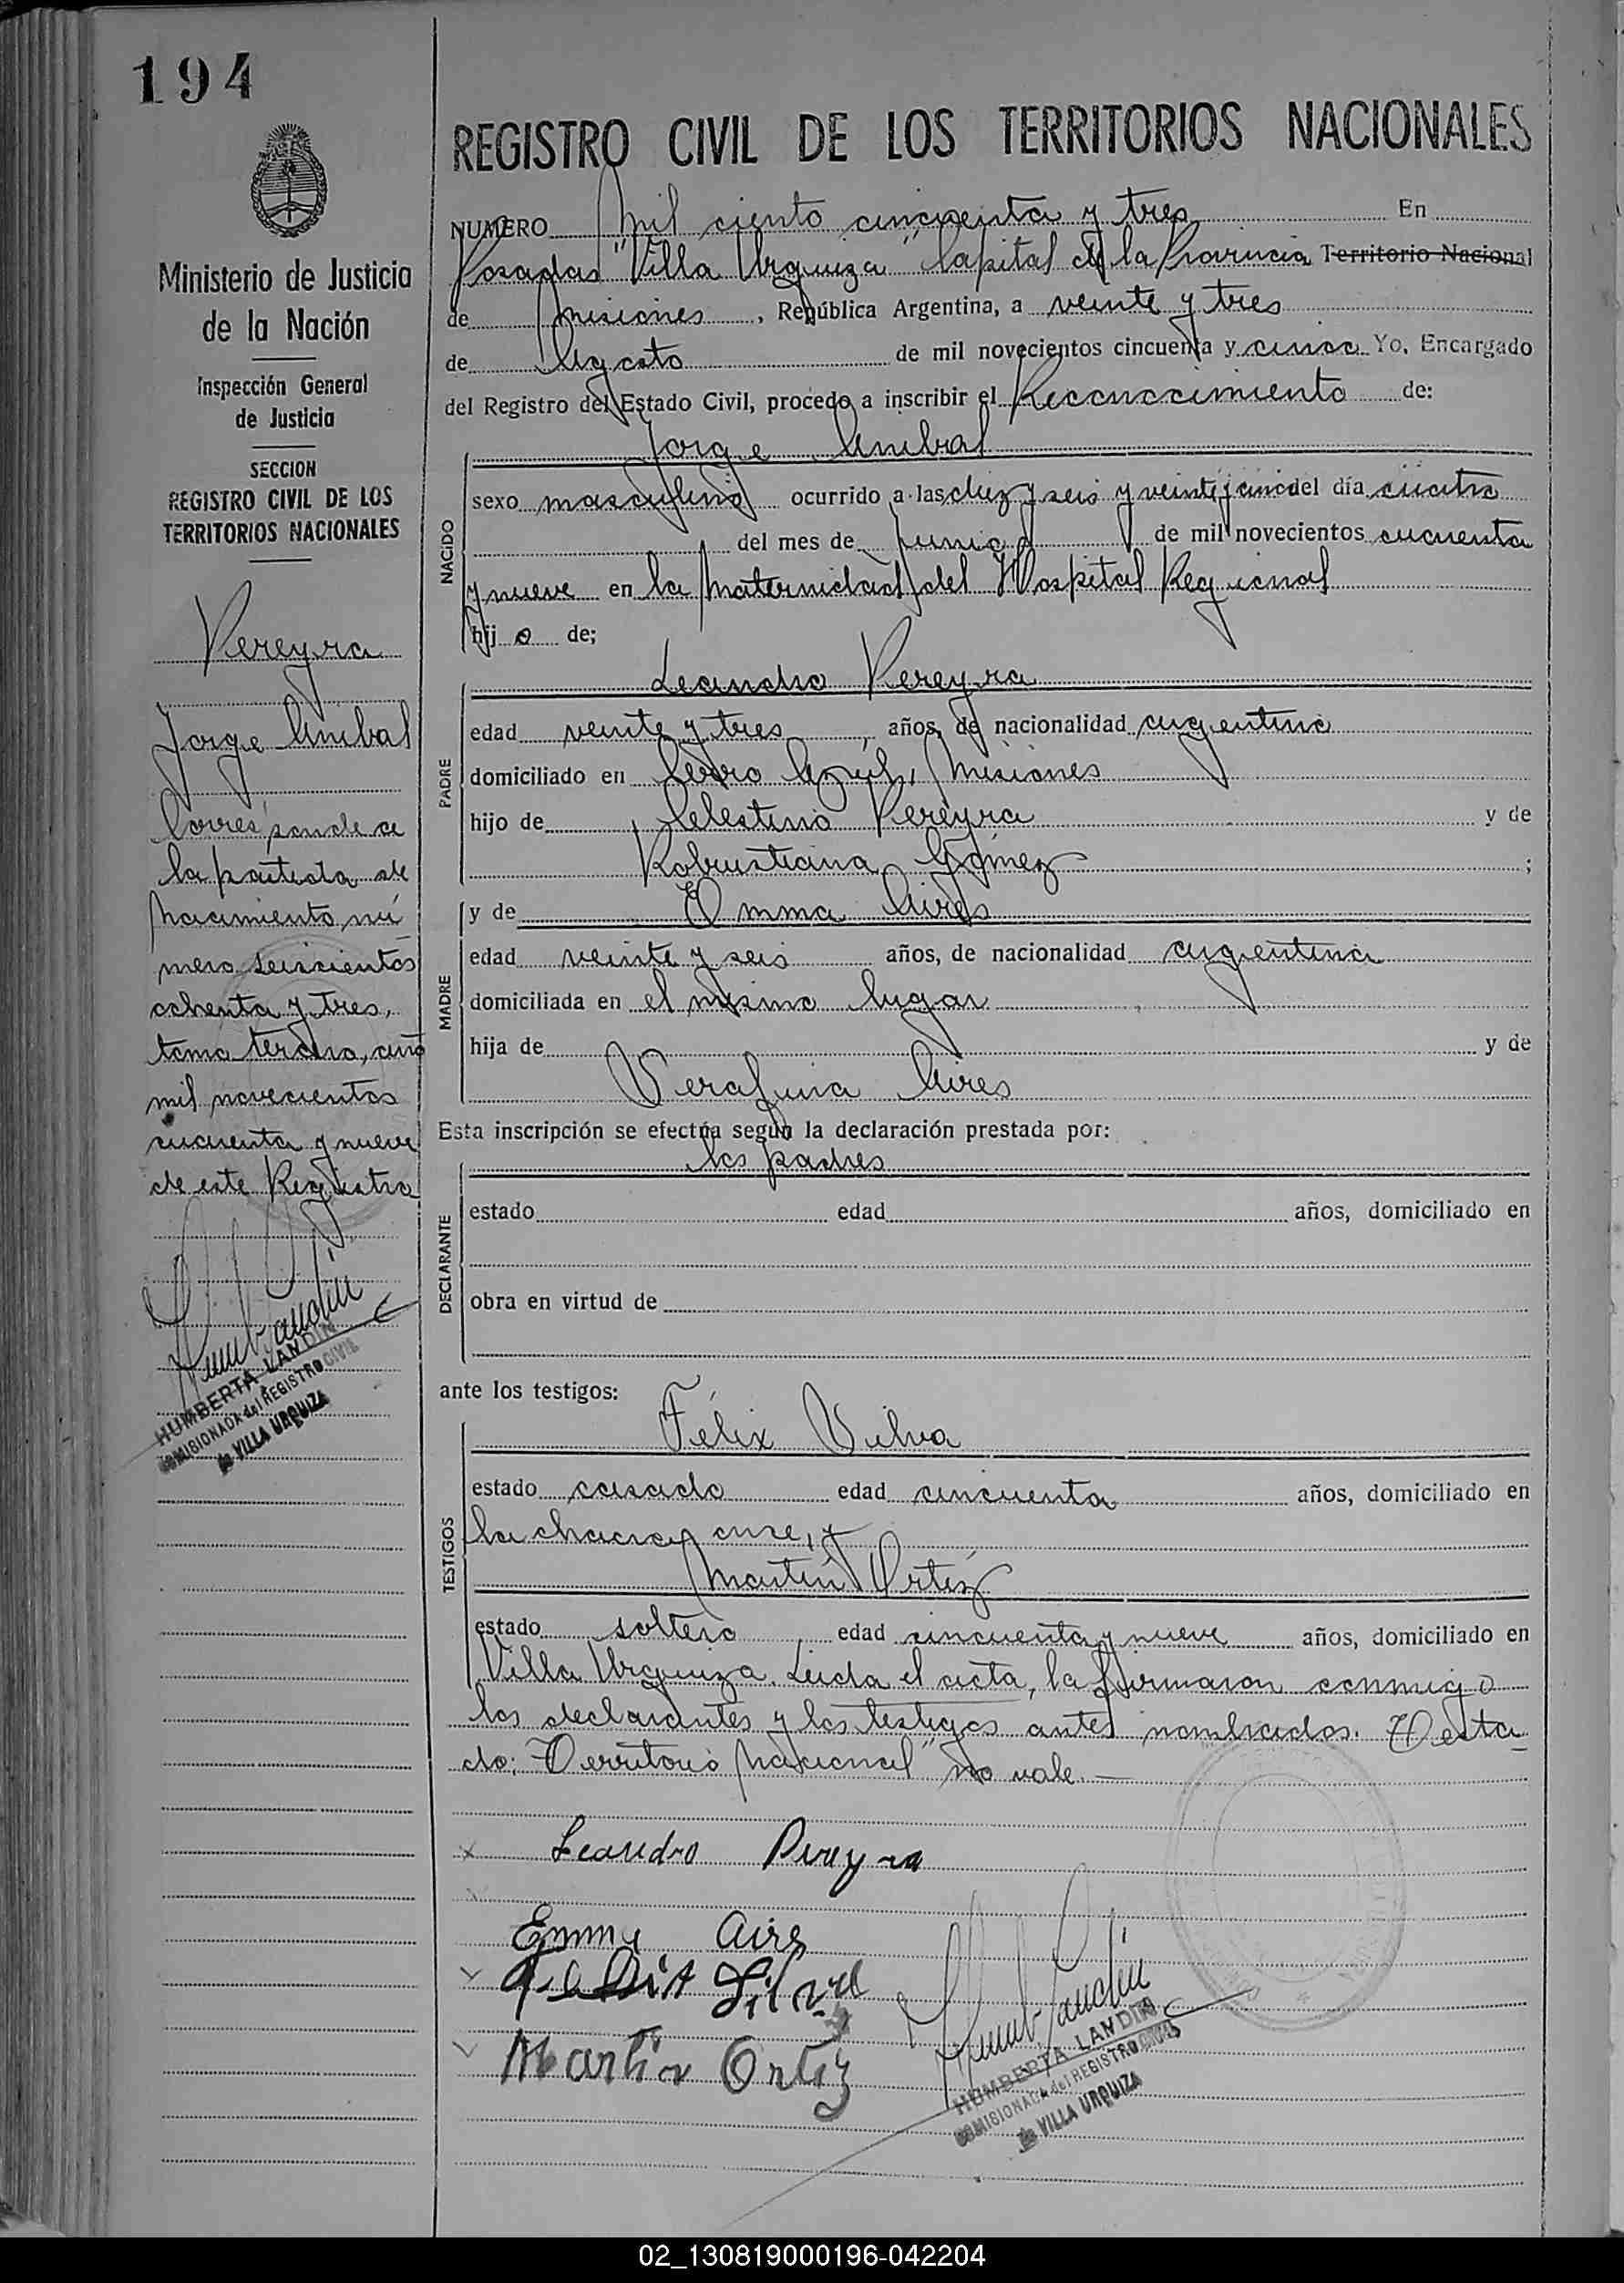 194
REGISTRO CIVIL DE LOS TERRITORIOS NACIONALES
NUMERO Mil ciento cincuenta y tres En
Posadas "Villa Urquiza" Capital de la Provincia Territorio Nacional
de Misiones, República Argentina, a veinte y tres
de Agosto de mil novecientos cincuenta y cinco Yo, Encargado
del Registro del Estado Civil, procedo a inscribir el Reconocimiento de:
Jorge Anibal
NACIDO
sexo masculino ocurrido a las diez y seis y veinticinco del día cuatro
del mes de Junio de mil novecientos cuarenta
y nueve en la Maternidad del Hospital Regional
hijo de;
PADRE
Leandro Pereyra
edad veinte y tres, años, de nacionalidad argentino
domiciliado en Cerro Azul, Misiones
hijo de Celestino Pereyra y de
Robustiana Gómez ;
MADRE
y de Emma Aires
edad veinte y seis años, de nacionalidad argentina
domiciliada en el mismo lugar
hija de y de
Serafina Aires
Esta inscripción se efectúa según la declaración prestada por:
los padres
DECLARANTE
estado edad años, domiciliado en
obra en virtud de
ante los testigos:
TESTIGOS
Félix Silva
estado casado edad cincuenta años, domiciliado en
la chacra once, y
Martín Ortíz
estado soltero edad cincuenta y nueve años, domiciliado en
Villa Urquiza. Leida el acta, la firmaron conmigo
los declarantes y los testigos antes nombrados. Testa-
do: "Territorio Nacional" no vale.—
x Leandro Pereyra
Emma Aires
Felix Silva
Martin Ortiz
HUMBERTA LANDIN
COMISIONADA del REGISTRO CIVIL
de VILLA URQUIZA
Ministerio de Justicia
de la Nación
Inspección General
de Justicia
SECCION
REGISTRO CIVIL DE LOS
TERRITORIOS NACIONALES
Pereyra
Jorge Anibal
Corresponde a
la partida de
nacimiento nú-
mero seiscientos
ochenta y tres,
tomo tercero, año
mil novecientos
cuarenta y nueve
de este Registro
HUMBERTA LANDIN
COMISIONADA del REGISTRO CIVIL
de VILLA URQUIZA
02_130819000196-042204